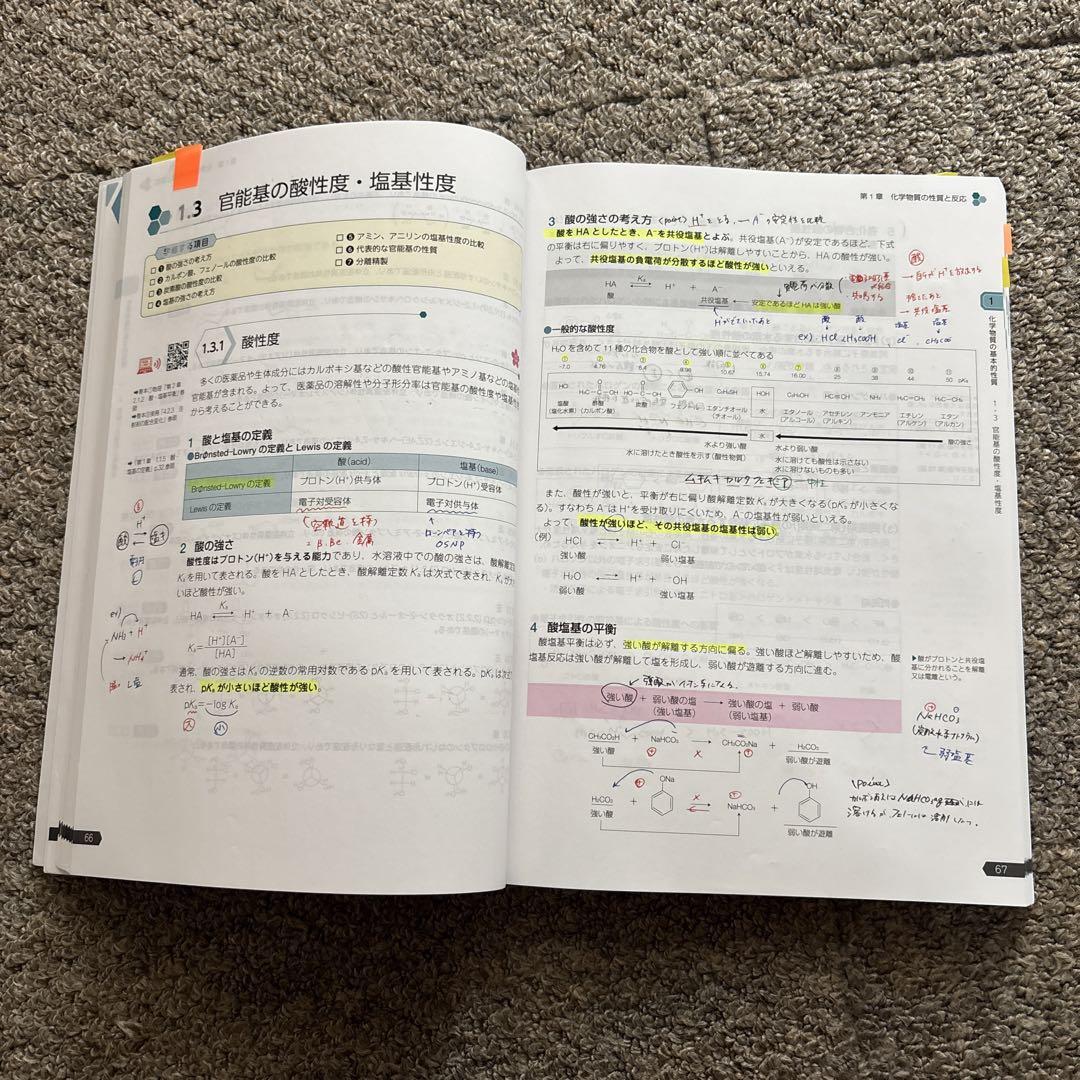 1.3 官能基の酸性度・塩基性度
項目
□ ❶ 酸の強さの考え方
□ ❷ カルボン酸、フェノールの酸性度の比較
□ ❸ 炭素酸の酸性度の比較
□ ❹ 塩基の強さの考え方
□ ❺ アミン、アニリンの塩基性度の比較
□ ❻ 代表的な官能基の性質
□ ❼ 分離精製
1.3.1 酸性度
多くの医薬品や生体成分にはカルボキシ基などの酸性官能基やアミノ基などの塩基
官能基が含まれる。よって、医薬品の溶解性や分子形分率は官能基の酸性度や塩基
から考えることができる。
1 酸と塩基の定義
●Brønsted-Lowry の定義と Lewis の定義
酸(acid) 塩基(base)
Brønsted-Lowry の定義 プロトン(H⁺)供与体 プロトン(H⁺)受容体
Lewis の定義 電子対受容体 電子対供与体
(空軌道を持つ
= B, Be 金属
↑
ローンペアを持つ
OSNP
H⁺
2 酸の強さ
酸性度はプロトン(H⁺)を与える能力であり、水溶液中での酸の強さは、酸解離定
Kₐを用いて表される。酸を HA としたとき、酸解離定数 Kₐは次式で表され、Kₐが大
いほど酸性が強い。
HA ⇄ H⁺ + A⁻
Kₐ
Kₐ= [H⁺][A⁻]
[HA]
通常、酸の強さは Kₐの逆数の常用対数である pKₐを用いて表される。pKₐは次式
表され、pKₐが小さいほど酸性が強い。
pKₐ=−log Kₐ
大 小
ex)
NH₃ + H⁺
→ NH₄⁺
66
第1章 化学物質の性質と反応
3 酸の強さの考え方 (point) H⁺をとる → A⁻の安定性を比較
酸を HA としたとき、A⁻を共役塩基とよぶ。共役塩基(A⁻)が安定であるほど、下式
の平衡は右に偏りやすく、プロトン(H⁺)は解離しやすいことから、HA の酸性が強い。
よって、共役塩基の負電荷が分散するほど酸性が強いといえる。
HA ⇄ H⁺ + A⁻
Kₐ
酸 共役塩基 ← 安定であるほど HA は強い酸
酸
→ 共役塩基
酸 酸 塩基 塩基
ex) HCl CH₃COOH Cl⁻, CH₃COO⁻
●一般的な酸性度
H₂O を含めて 11 種の化合物を酸として強い順に並べてある
① ② ③ ④ ⑤ ⑥ ⑦ ⑧ ⑨ ⑩ ⑪
-7.0 4.76 6.4 9.98 10.67 15.74 16.00 25 38 44 50 pKₐ
HCl C₂H₅SH HOH C₂H₅OH HC≡CH NH₃ H₂C=CH₂ H₃C−CH₃
塩酸 酢酸 炭酸 フェノール エタンチオール 水 エタノール アセチレン アンモニア エチレン エタン
(塩化水素) (カルボン酸) (チオール) (アルコール) (アルキン) (アルケン) (アルカン)
水 酸の強さ
水より強い酸 水より弱い酸
水に溶けたとき酸性を示す(酸性物質) 水に溶けても酸性は示さない
水に溶けないものも多い
中性
また、酸性が強いと、平衡が右に偏り酸解離定数 Kₐが大きくなる(pKₐが小さくな
る)。すなわち A⁻は H⁺を受け取りにくいため、A⁻の塩基性が弱いといえる。
よって、酸性が強いほど、その共役塩基の塩基性は弱い。
(例) HCl ⇄ H⁺ + Cl⁻
強い酸 弱い塩基
H₂O ⇄ H⁺ + OH
弱い酸 強い塩基
4 酸塩基の平衡
酸塩基平衡は必ず、強い酸が解離する方向に偏る。強い酸ほど解離しやすいため、酸
塩基反応は強い酸が解離して塩を形成し、弱い酸が遊離する方向に進む。
強い酸 + 弱い酸の塩 → 強い酸の塩 + 弱い酸
(強い塩基) (弱い塩基)
CH₃CO₂H + NaHCO₃ → CH₃CO₂Na + H₂CO₃
強い酸 弱い酸が遊離
H₂CO₃ + ONa ⇄ NaHCO₃ + OH
強い酸 弱い酸が遊離
▶酸がプロトンと共役塩
基に分かれることを解離
又は電離という。
NaHCO₃
(炭酸水素ナトリウム)
弱塩基
(point)
1
化学物質の基本的性質
1・3 官能基の酸性度・塩基性度
67